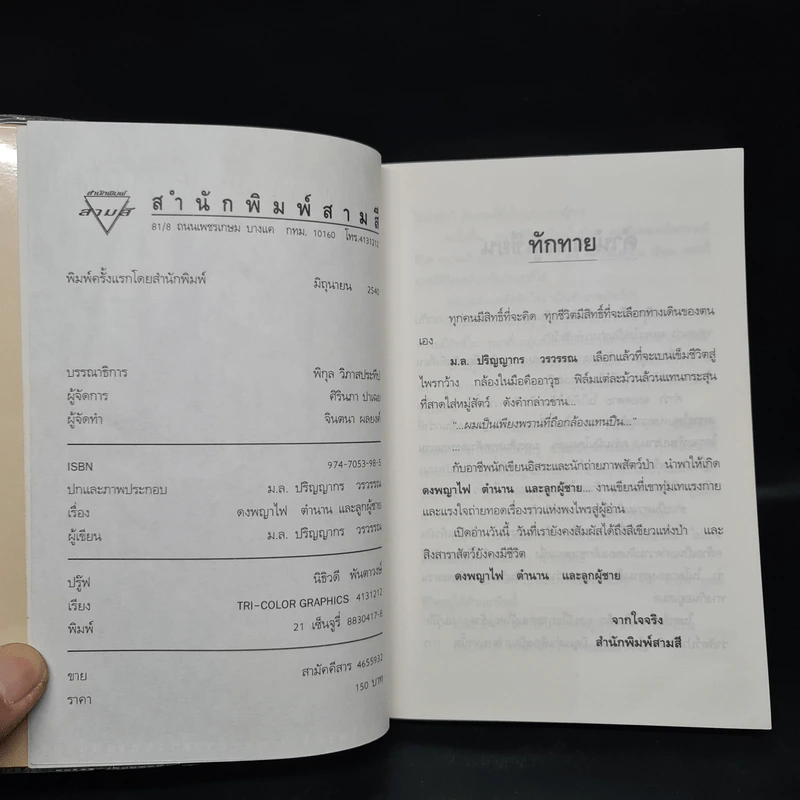 สำนักพิมพ์
สามสี
สำนักพิมพ์สามสี
81/8 ถนนเพชรเกษม บางแค กทม. 10160 โทร.4131212
พิมพ์ครั้งแรกโดยสำนักพิมพ์ มิถุนายน 2540
บรรณาธิการ พิกุล วิภาสประทีป
ผู้จัดการ ศิรินภา ปาเฉย
ผู้จัดทำ จินตนา ผลยงค์
ISBN 974-7053-98-5
ปกและภาพประกอบ ม.ล. ปริญญากร วรวรรณ
เรื่อง ดงพญาไฟ ตำนาน และลูกผู้ชาย
ผู้เขียน ม.ล. ปริญญากร วรวรรณ
ปรู๊ฟ นิธิวดี พันตาวงษ์
เรียง TRI-COLOR GRAPHICS 4131212
พิมพ์ 21 เซ็นจูรี่ 8830417-8
ขาย สามัคคีสาร 4655932
ราคา 150 บาท
ทักทาย
ทุกคนมีสิทธิ์ที่จะคิด ทุกชีวิตมีสิทธิ์ที่จะเลือกทางเดินของตน
เอง
ม.ล. ปริญญากร วรวรรณ เลือกแล้วที่จะเบนเข็มชีวิตสู่
ไพรกว้าง กล้องในมือคืออาวุธ ฟิล์มแต่ละม้วนล้วนแทนกระสุน
ที่สาดใส่หมู่สัตว์ ดังคำกล่าวขาน...
"...ผมเป็นเพียงพรานที่ถือกล้องแทนปืน..."
...
กับอาชีพนักเขียนอิสระและนักถ่ายภาพสัตว์ป่า นำพาให้เกิด
ดงพญาไฟ ตำนาน และลูกผู้ชาย... งานเขียนที่เขาทุ่มเทแรงกาย
และแรงใจถ่ายทอดเรื่องราวแห่งพงไพรสู่ผู้อ่าน
เปิดอ่านวันนี้ วันที่เรายังคงสัมผัสได้ถึงสีเขียวแห่งป่า และ
สิงสาราสัตว์ยังคงมีชีวิต
ดงพญาไฟ ตำนาน และลูกผู้ชาย
จากใจจริง
สำนักพิมพ์สามสี